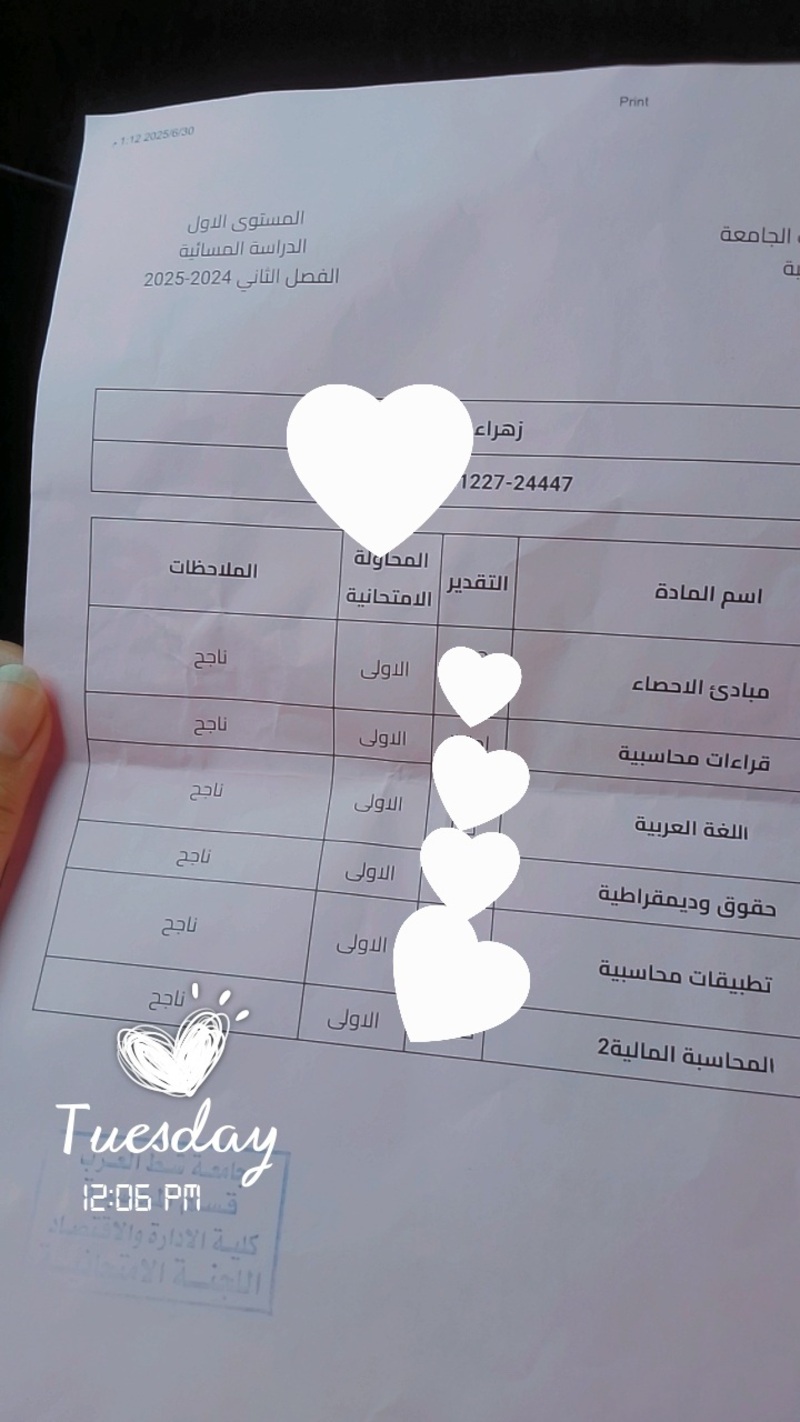 Print
1:12 2025/6/30 م
الجامعة
المستوى الاول
الدراسة المسائية
الفصل الثاني 2024-2025
زهراء
1227-24447
اسم المادة التقدير المحاولة الامتحانية الملاحظات
مبادئ الاحصاء الاولى ناجح
قراءات محاسبية الاولى ناجح
اللغة العربية الاولى ناجح
حقوق وديمقراطية الاولى ناجح
تطبيقات محاسبية الاولى ناجح
المحاسبة المالية2 الاولى ناجح
Tuesday
12:06 PM
جامعة شط العرب
كلية الادارة والاقتصاد
اللجنة الامتحانية